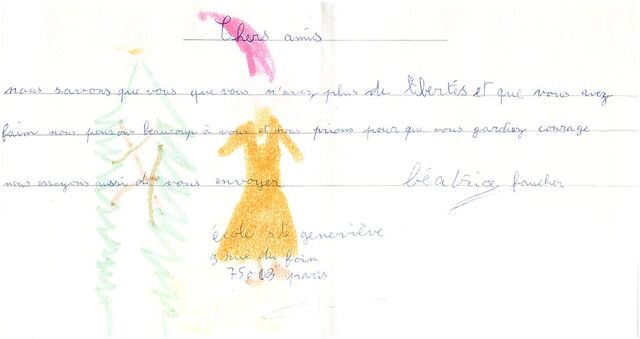 Chers amis
nous savons que vous que vous n'avez plus de libertés et que vous avez
faim nous pensons beaucoup à vous et nous prions pour que vous gardiez courage
nous essayons aussi de vous envoyer béatrice faucher
école ste geneviève
9 rue du foin
75003 paris